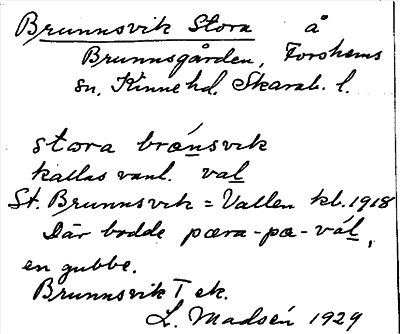 Brunnsvik Stora å
Brunnsgården, Forshems
sn, Kinne hd. Skarab. l.
stora brónsvik
kallas vanl. val
St. Brunnsvik = Vallen kb. 1918
Där bodde pæra-pæ-vál,
en gubbe.
Brunnsvik T ek.
L. Madsén 1929